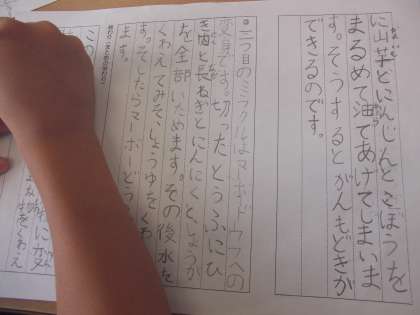 に山芋とにんじんとごぼうを
まるめて油であげてしまいま
す。そうするとがんもどきが
できるのです。
二つ目のミラクルはマーボードウフへの
変身です。切ったとうふにひ
き肉と長ねぎとにんにくとしょうが
を全部いためます。その後水を
くわえてみそ、しょうゆをくわ
ます。そしたらマーボーどう
ます。
この
に変
をくわえ